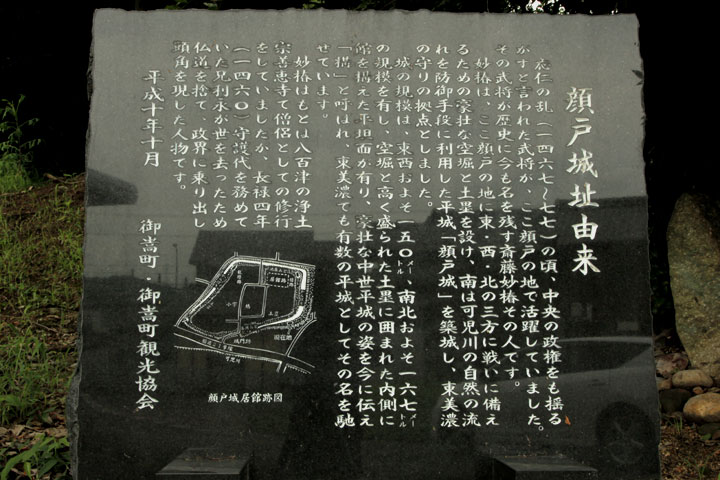 顔戸城址由来
応仁の乱(一四六七～七七)の頃、中央の政権をも揺る
がすと言われた武将が、ここ顔戸の地で活躍していました。
その武将が歴史に今も名を残す斎藤妙椿その人です。
妙椿は、ここ顔戸の地に東・西・北の三方に戦いに備え
るための豪壮な空堀と土塁を設け、南は可児川の自然の流
れを防御手段に利用した平城「顔戸城」を築城し、東美濃
の守りの拠点としました。
城の規模は、東西およそ一五〇メートル、南北およそ一六七メートル
の規模を有し、空堀と高く盛られた土塁に囲まれた内側に
館を備えた平坦面が有り、豪壮な中世平城の姿を今に伝え
「構」と呼ばれ、東美濃でも有数の平城としてその名を馳
せています。
妙椿はもとは八百津の浄土
宗善恵寺で僧侶としての修行
をしていましたが、長禄四年
(一四六〇)守護代を務めて
いた兄利永が世を去ったため
仏道を捨て、政界に乗り出し
頭角を現した人物です。
平成十年十月
御嵩町・御嵩町観光協会
居館跡
城門跡
現在地
可児川
顔戸城居館跡図